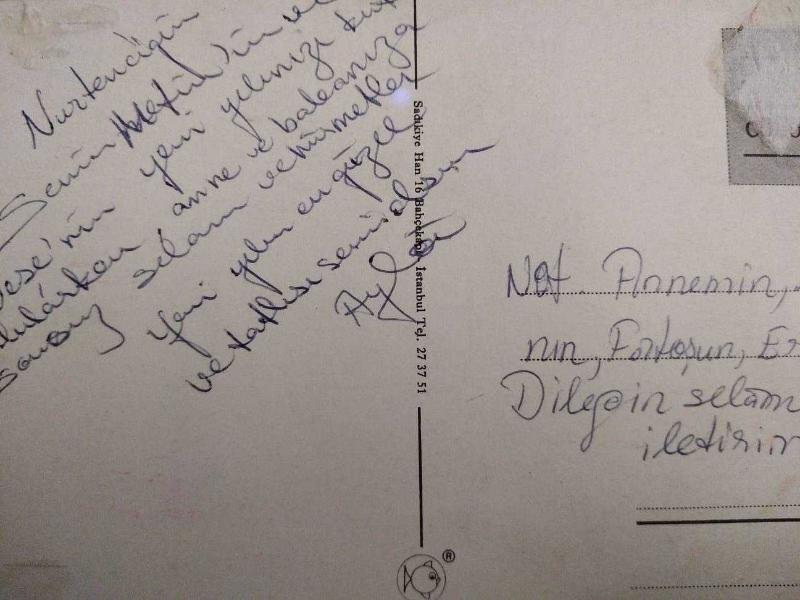 Nurtenciğin
Senin Metin'in ve
yeni yılınızı kut
anne ve babanıza
sonsuz selam ve hürmetler
Yeni yılın en güzel
ve tatlısı senin olsun
Ayla
Sadıkiye Han 16 Bahçekapı İstanbul Tel. 27 37 51
®
Not. Annemin,
nın, Ertoşun, Er
Dilgein selâm
iletirim